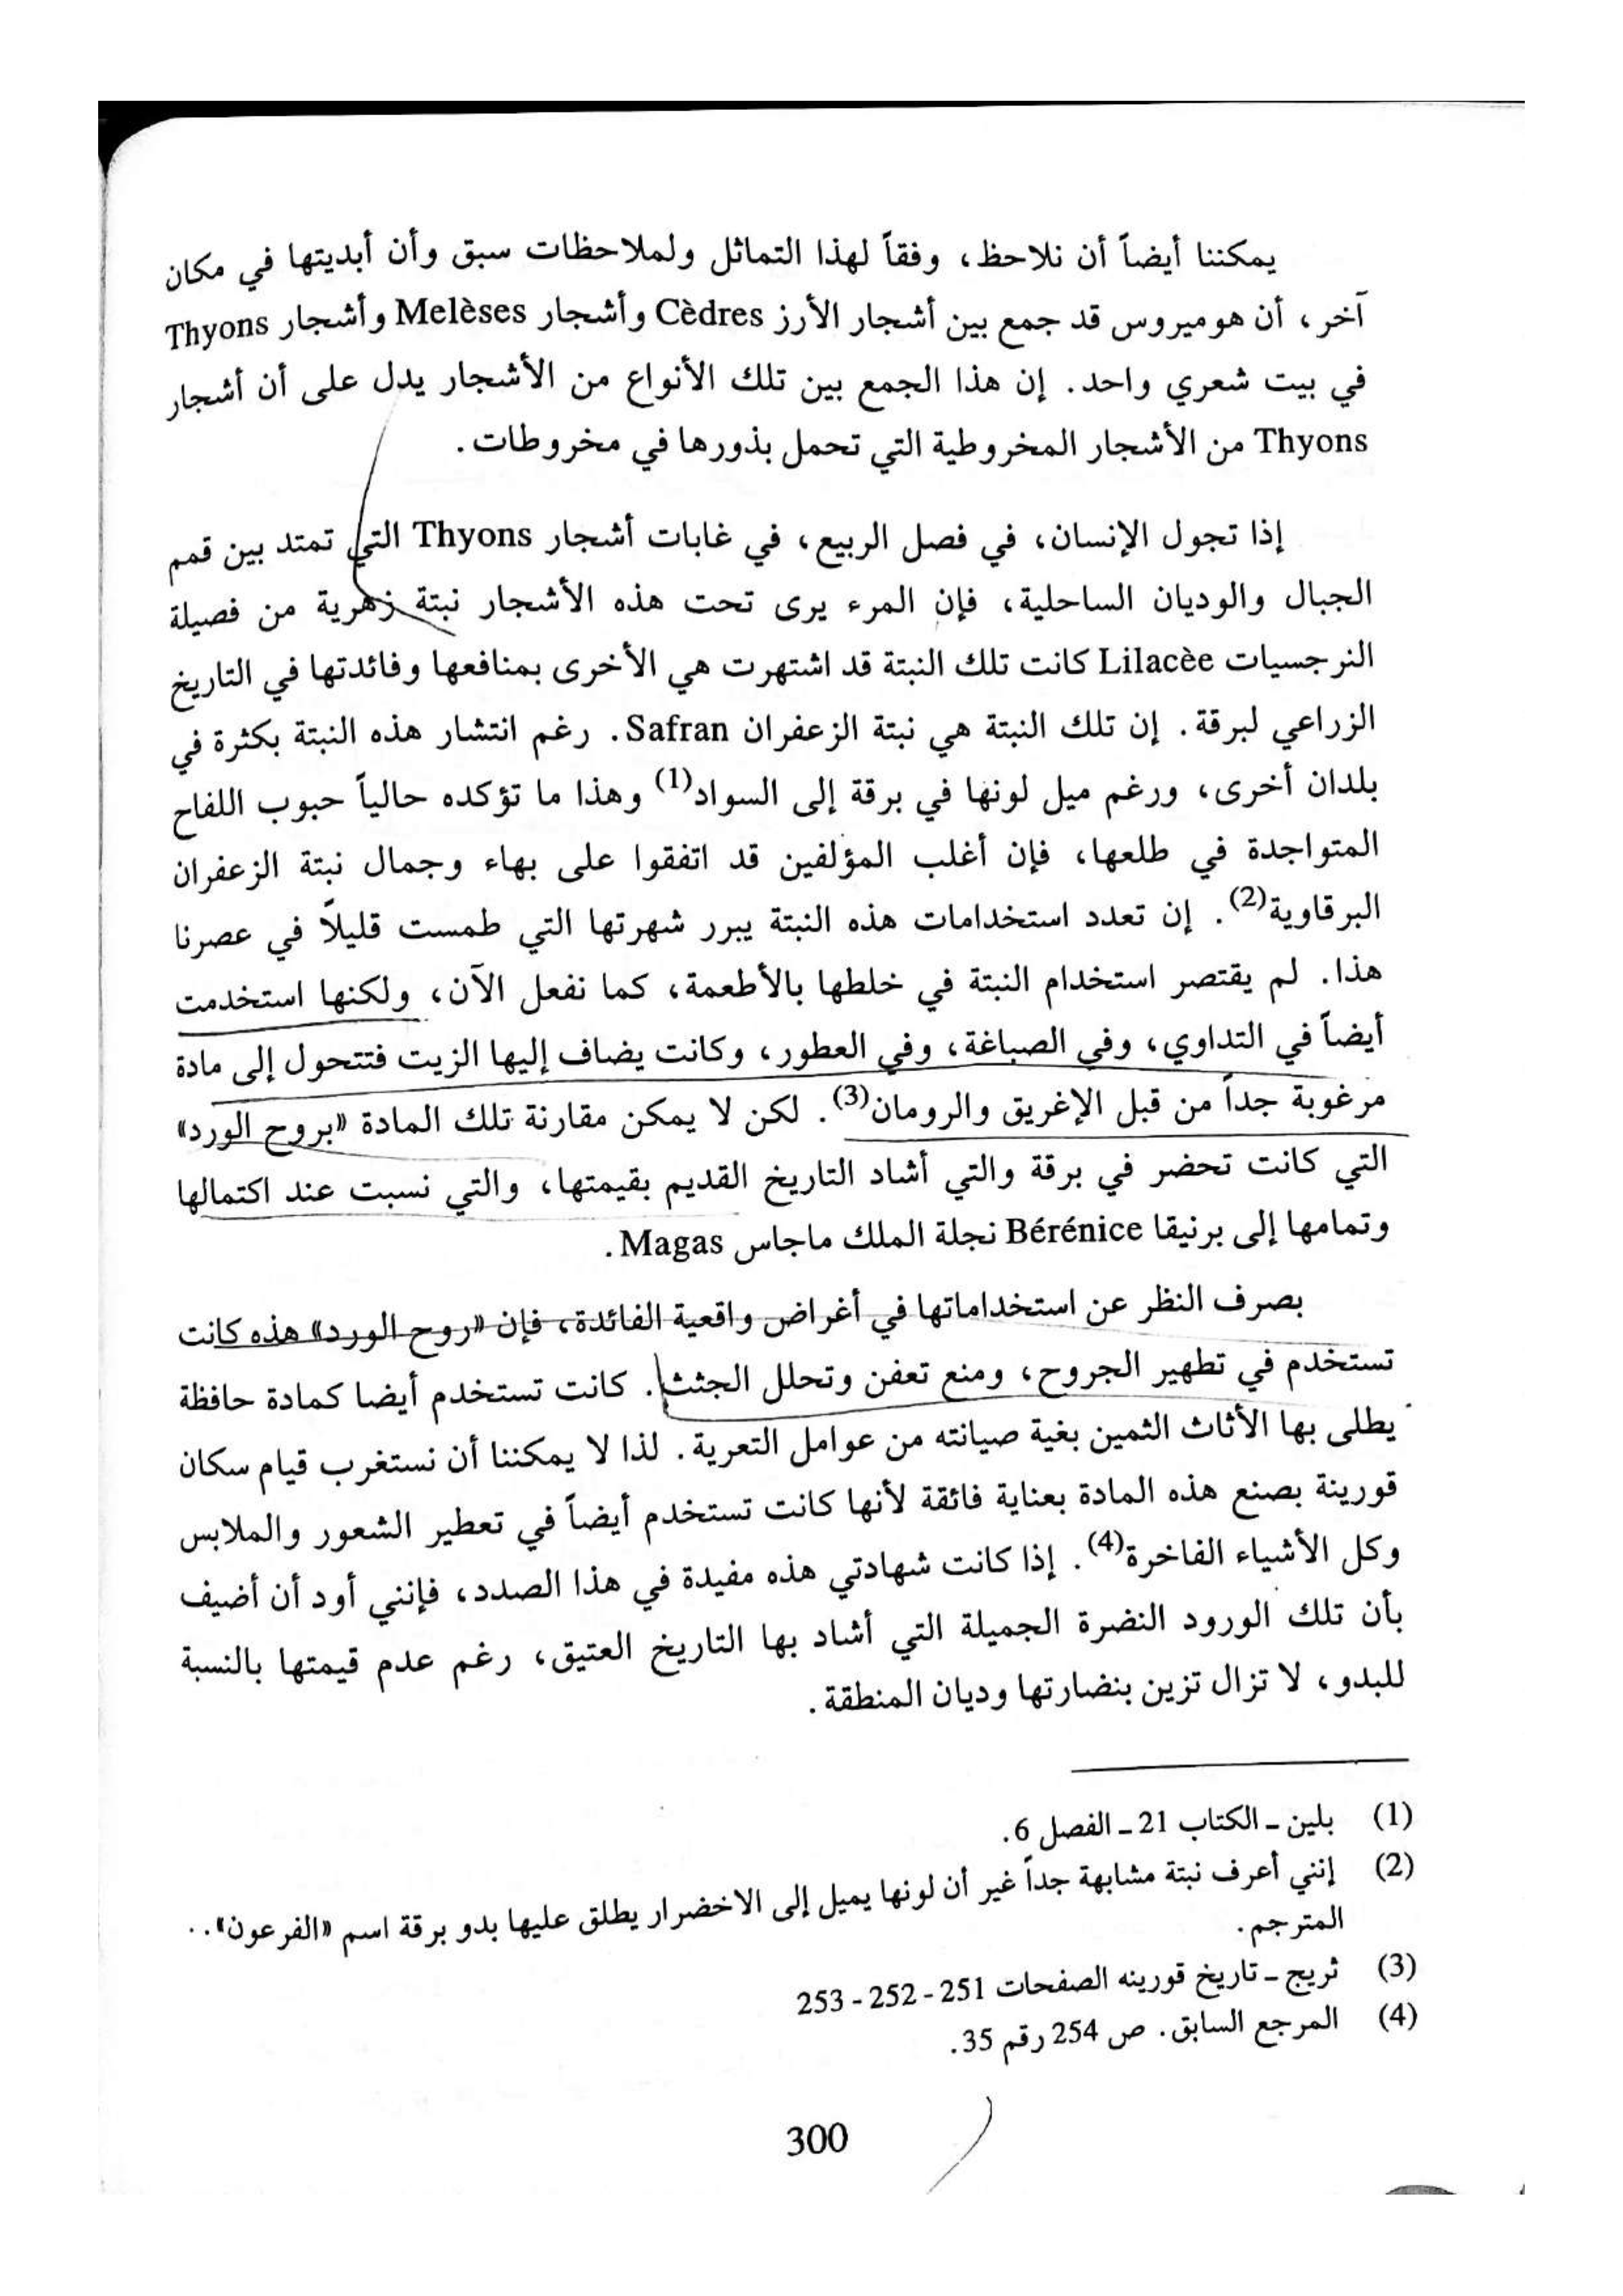 يمكننا أيضاً أن نلاحظ، وفقاً لهذا التماثل ولملاحظات سبق وأن أبديتها في مكان
آخر، أن هوميروس قد جمع بين أشجار الأرز Cèdres وأشجار Melèses وأشجار Thyons
في بيت شعري واحد. إن هذا الجمع بين تلك الأنواع من الأشجار يدل على أن أشجار
Thyons من الأشجار المخروطية التي تحمل بذورها في مخروطات.
إذا تجول الإنسان، في فصل الربيع، في غابات أشجار Thyons التي تمتد بين قمم
الجبال والوديان الساحلية، فإن المرء يرى تحت هذه الأشجار نبتة زهرية من فصيلة
النرجسيات Lilacèe كانت تلك النبتة قد اشتهرت هي الأخرى بمنافعها وفائدتها في التاريخ
الزراعي لبرقة. إن تلك النبتة هي نبتة الزعفران Safran. رغم انتشار هذه النبتة بكثرة في
بلدان أخرى، ورغم ميل لونها في برقة إلى السواد(1) وهذا ما تؤكده حالياً حبوب اللفاح
المتواجدة في طلعها، فإن أغلب المؤلفين قد اتفقوا على بهاء وجمال نبتة الزعفران
البرقاوية(2). إن تعدد استخدامات هذه النبتة يبرر شهرتها التي طمست قليلاً في عصرنا
هذا. لم يقتصر استخدام النبتة في خلطها بالأطعمة، كما نفعل الآن، ولكنها استخدمت
أيضاً في التداوي، وفي الصباغة، وفي العطور، وكانت يضاف إليها الزيت فتتحول إلى مادة
مرغوبة جداً من قبل الإغريق والرومان(3). لكن لا يمكن مقارنة تلك المادة «بروح الورد»
التي كانت تحضر في برقة والتي أشاد التاريخ القديم بقيمتها، والتي نسبت عند اكتمالها
وتمامها إلى برنيقا Bérénice نجلة الملك ماجاس Magas.
بصرف النظر عن استخداماتها في أغراض واقعية الفائدة، فإن «روح الورد» هذه كانت
تستخدم في تطهير الجروح، ومنع تعفن وتحلل الجثث. كانت تستخدم أيضا كمادة حافظة
يطلى بها الأثاث الثمين بغية صيانته من عوامل التعرية. لذا لا يمكننا أن نستغرب قيام سكان
قورينة بصنع هذه المادة بعناية فائقة لأنها كانت تستخدم أيضاً في تعطير الشعور والملابس
وكل الأشياء الفاخرة(4). إذا كانت شهادتي هذه مفيدة في هذا الصدد، فإنني أود أن أضيف
بأن تلك الورود النضرة الجميلة التي أشاد بها التاريخ العتيق، رغم عدم قيمتها بالنسبة
للبدو، لا تزال تزين بنضارتها وديان المنطقة.
(1) بلين ـ الكتاب 21 ـ الفصل 6.
(2) إنني أعرف نبتة مشابهة جداً غير أن لونها يميل إلى الاخضرار يطلق عليها بدو برقة اسم «الفرعون»..
المترجم.
(3) ثريج ـ تاريخ قورينه الصفحات 251 - 252 - 253
(4) المرجع السابق. ص 254 رقم 35.
300